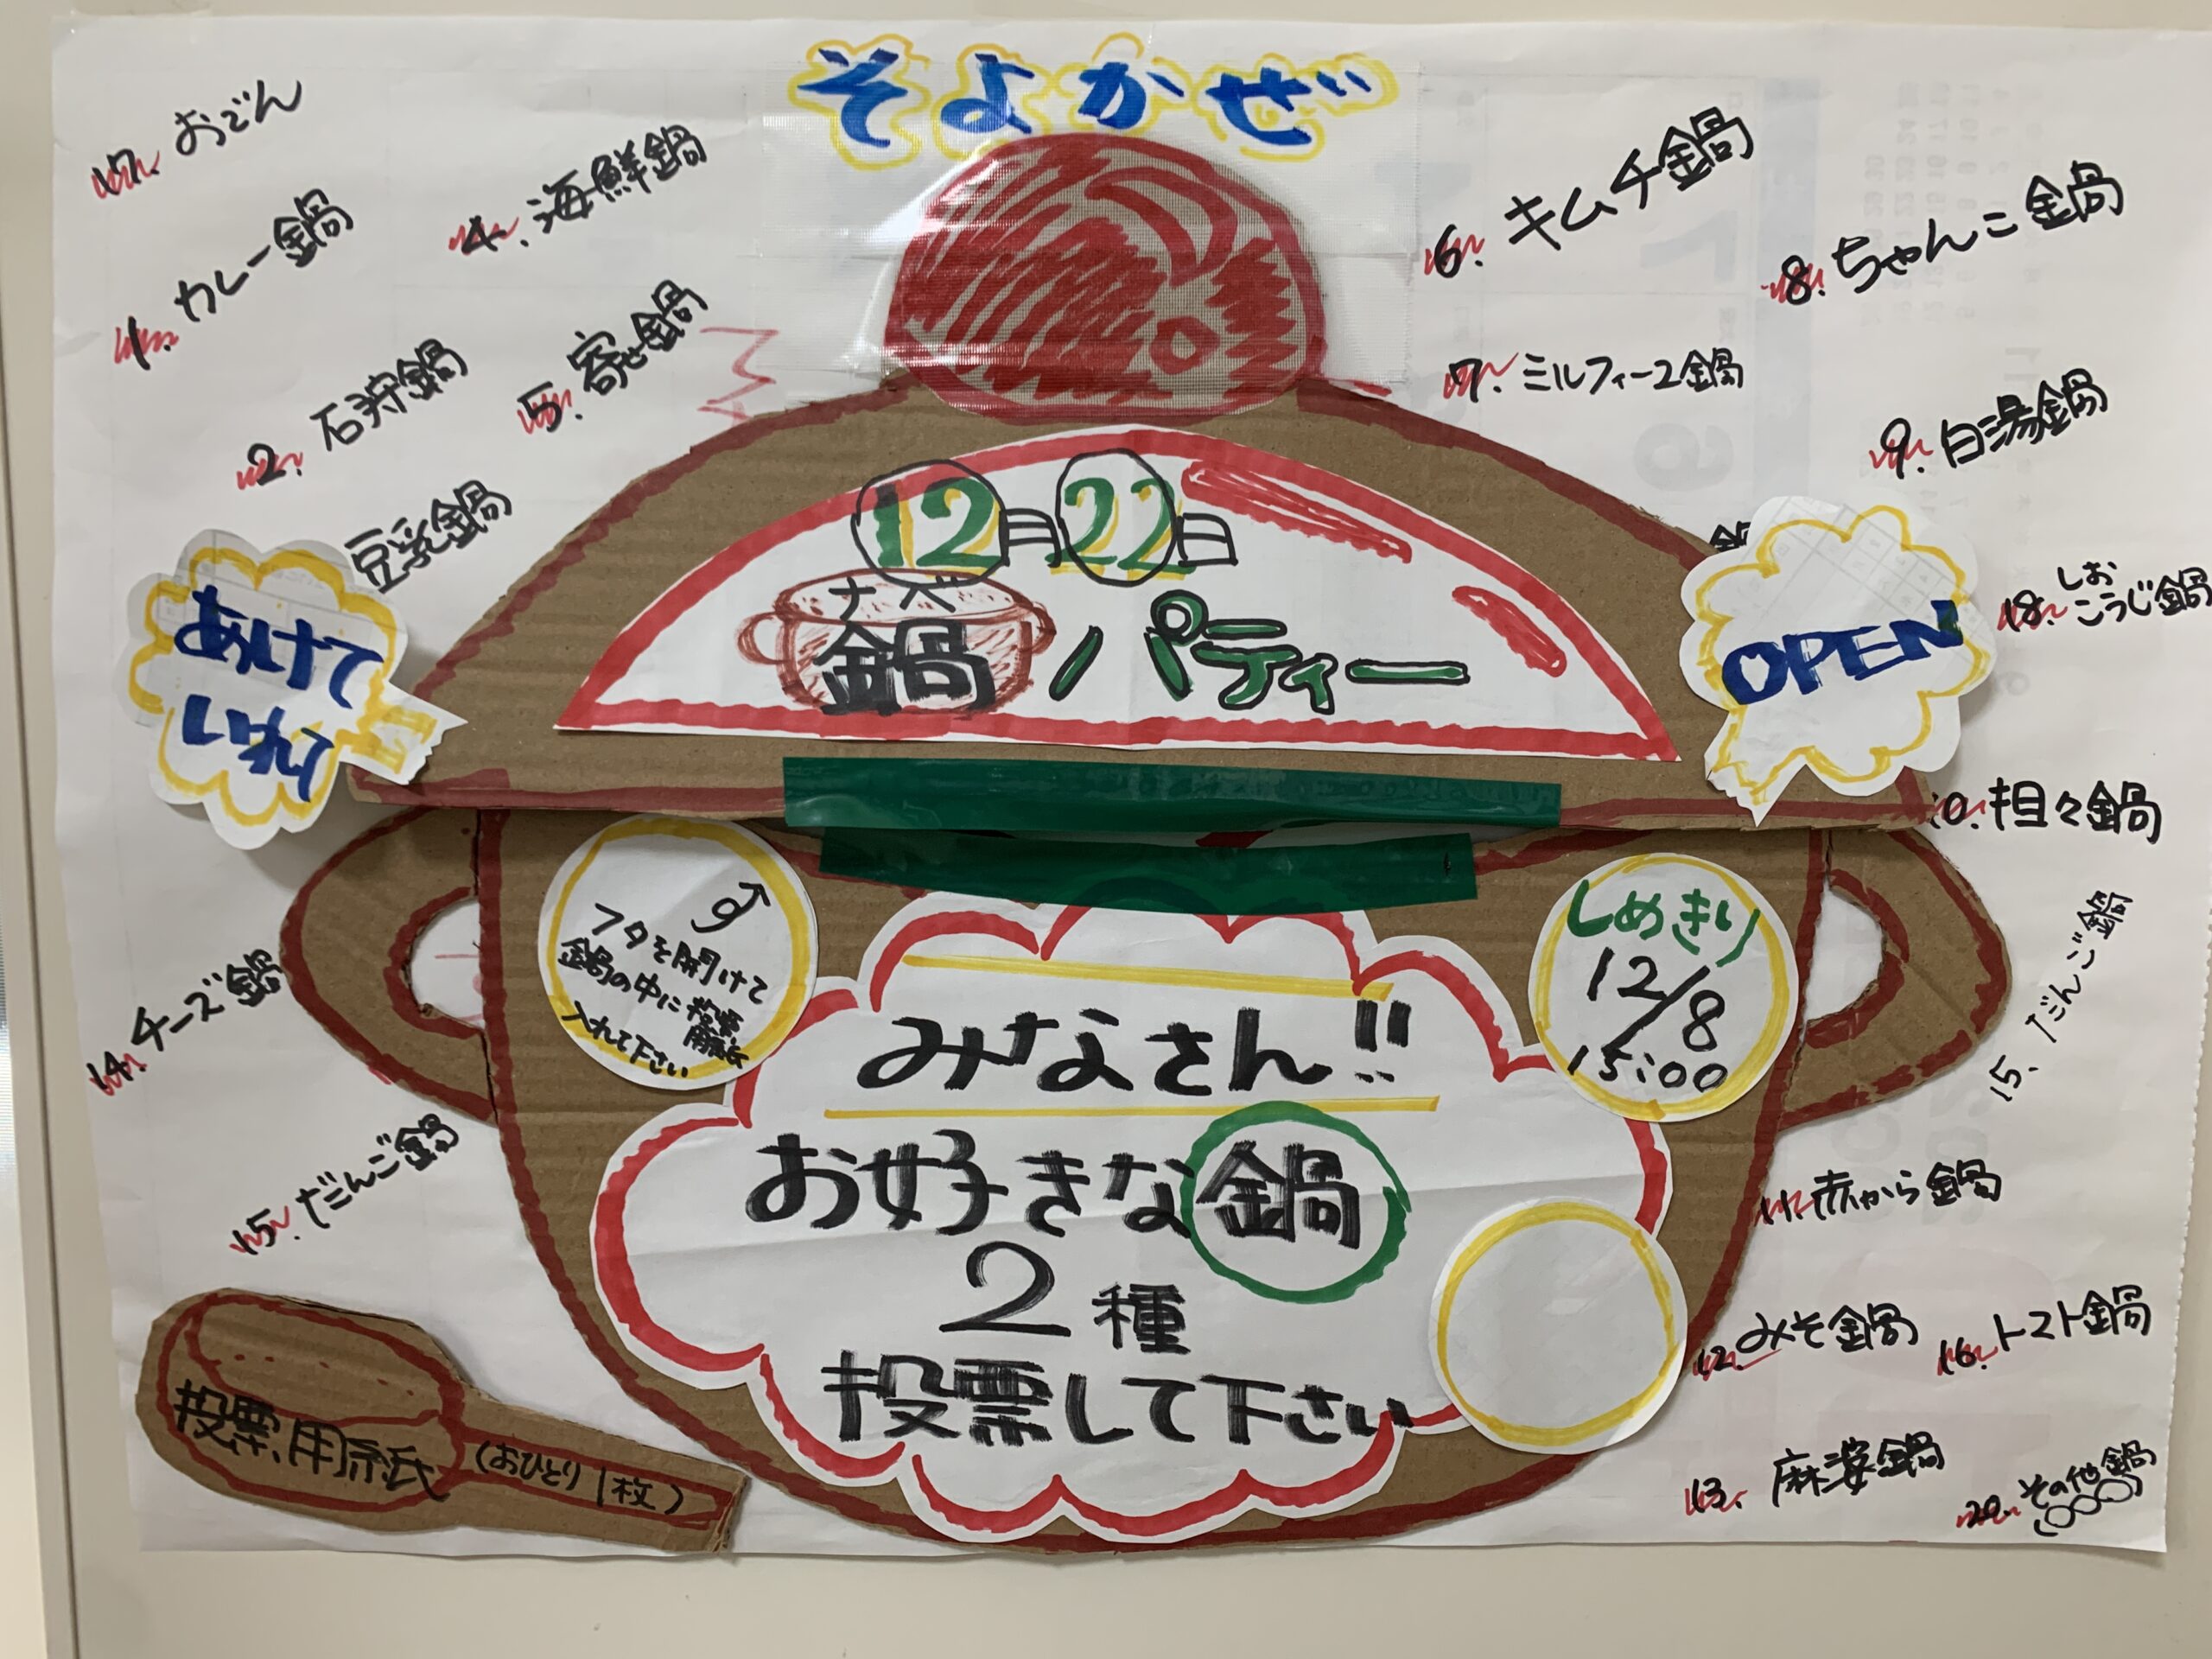 そよかぜ
17. おでん
1. カレー鍋
4. 海鮮鍋
2. 石狩鍋
5. 寄せ鍋
豆乳鍋
6. キムチ鍋
8. ちゃんこ鍋
7. ミルフィーユ鍋
9. 白湯鍋
18. しおこうじ鍋
10. 担々鍋
15. だんご鍋
11. 赤から鍋
12. みそ鍋
16. トマト鍋
13. 麻婆鍋
20. その他鍋
(○○○○)
14. チーズ鍋
15. だんご鍋
あけて
いれて
OPEN
12月22日
ナベ
鍋パティー
フタを開けて
鍋の中に投票用紙
入れて下さい
しめきり
12/8
15:00
みなさん!!
お好きな鍋
2種
投票して下さい
投票用紙 (おひとり1枚)